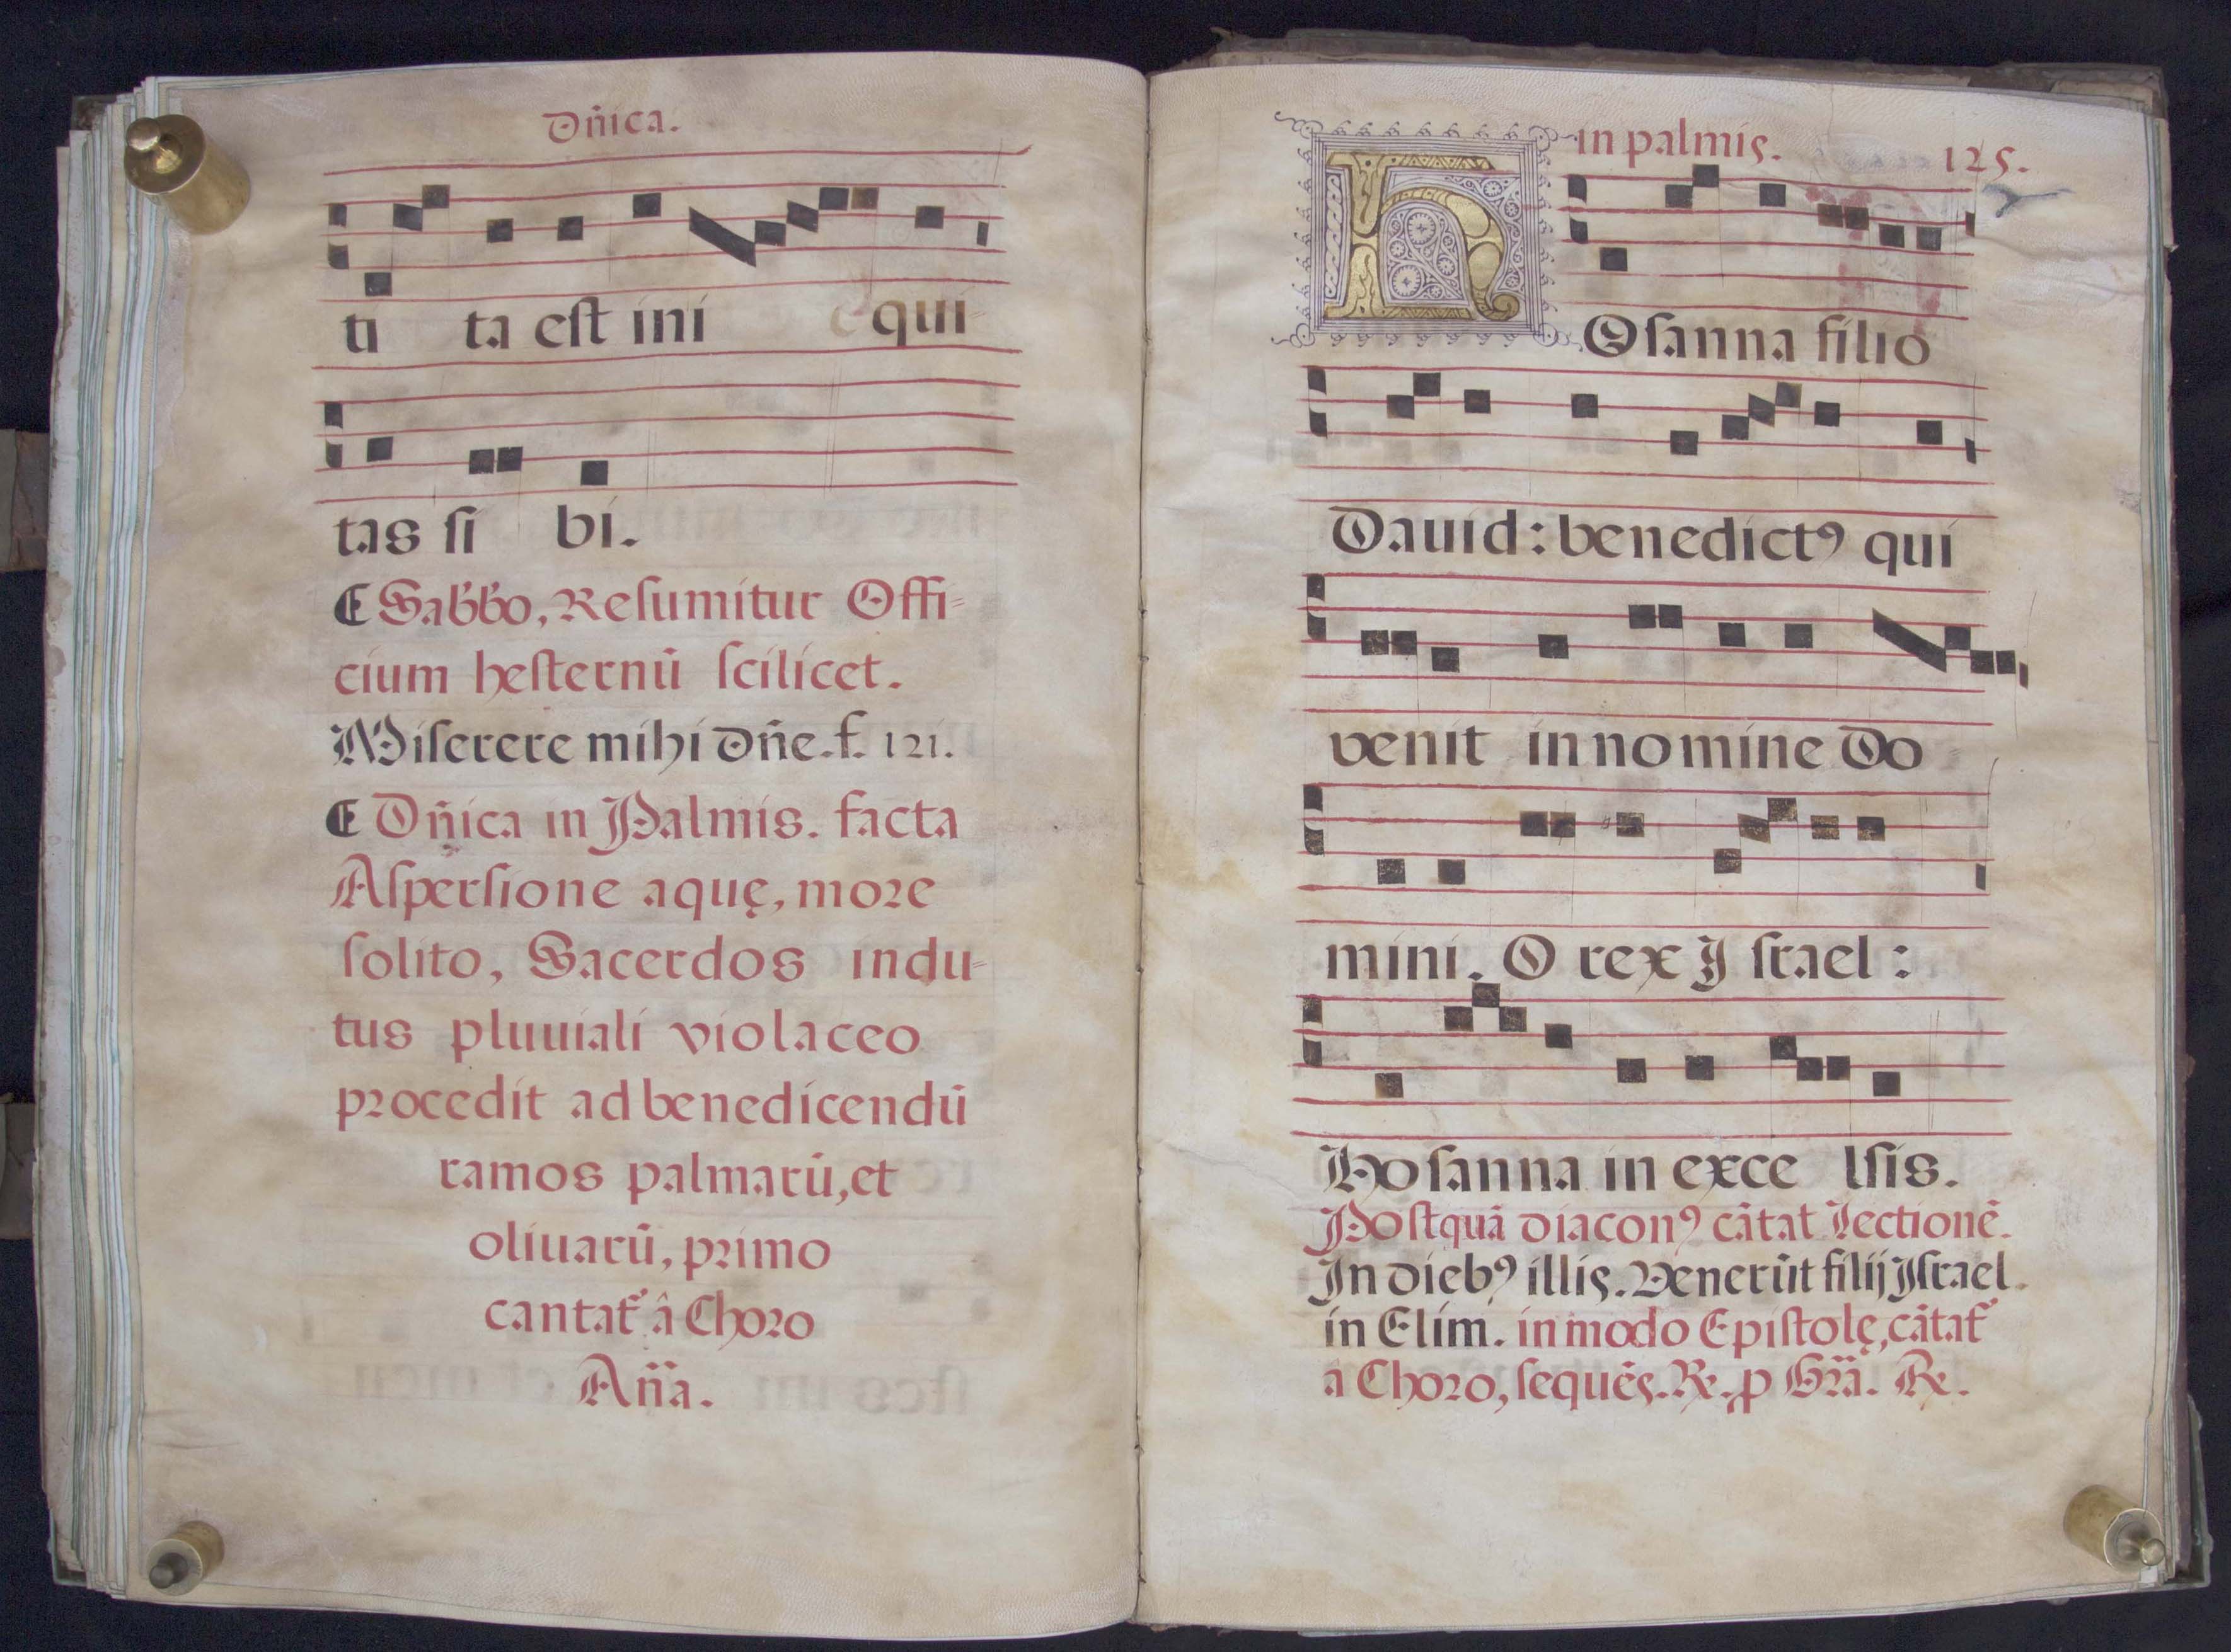 Dñica.
ti ta eſt ini qui-
tas ſi bi.
Sab̃b̃o, Reſumitur Offi-
cium heſternū ſcilicet.
Miſerere mihi dñe. f. 121.
Dñica in Palmis. facta
Aſperſione aquę, more
ſolito, Sacerdos indu-
tus pluuiali violaceo
procedit ad benedicendū
ramos palmarū, et
oliuarū, primo
cantat᷑ â Choro
Añ̃a.
in palmis. 125.
HOſanna filio
Dauid: benedictꝰ qui
venit in nomine Do
mini. O rex I ſrael:
Hoſanna in exce lſis.
Poſtquā diaconꝰ cātat Lectionē.
In diebꝰ illis. Venerūt filij Iſrael
in Elim. in modo Epiſtolę, cātat᷑
a Choro, ſequēs. ℞. p Gr̃a. ℞.